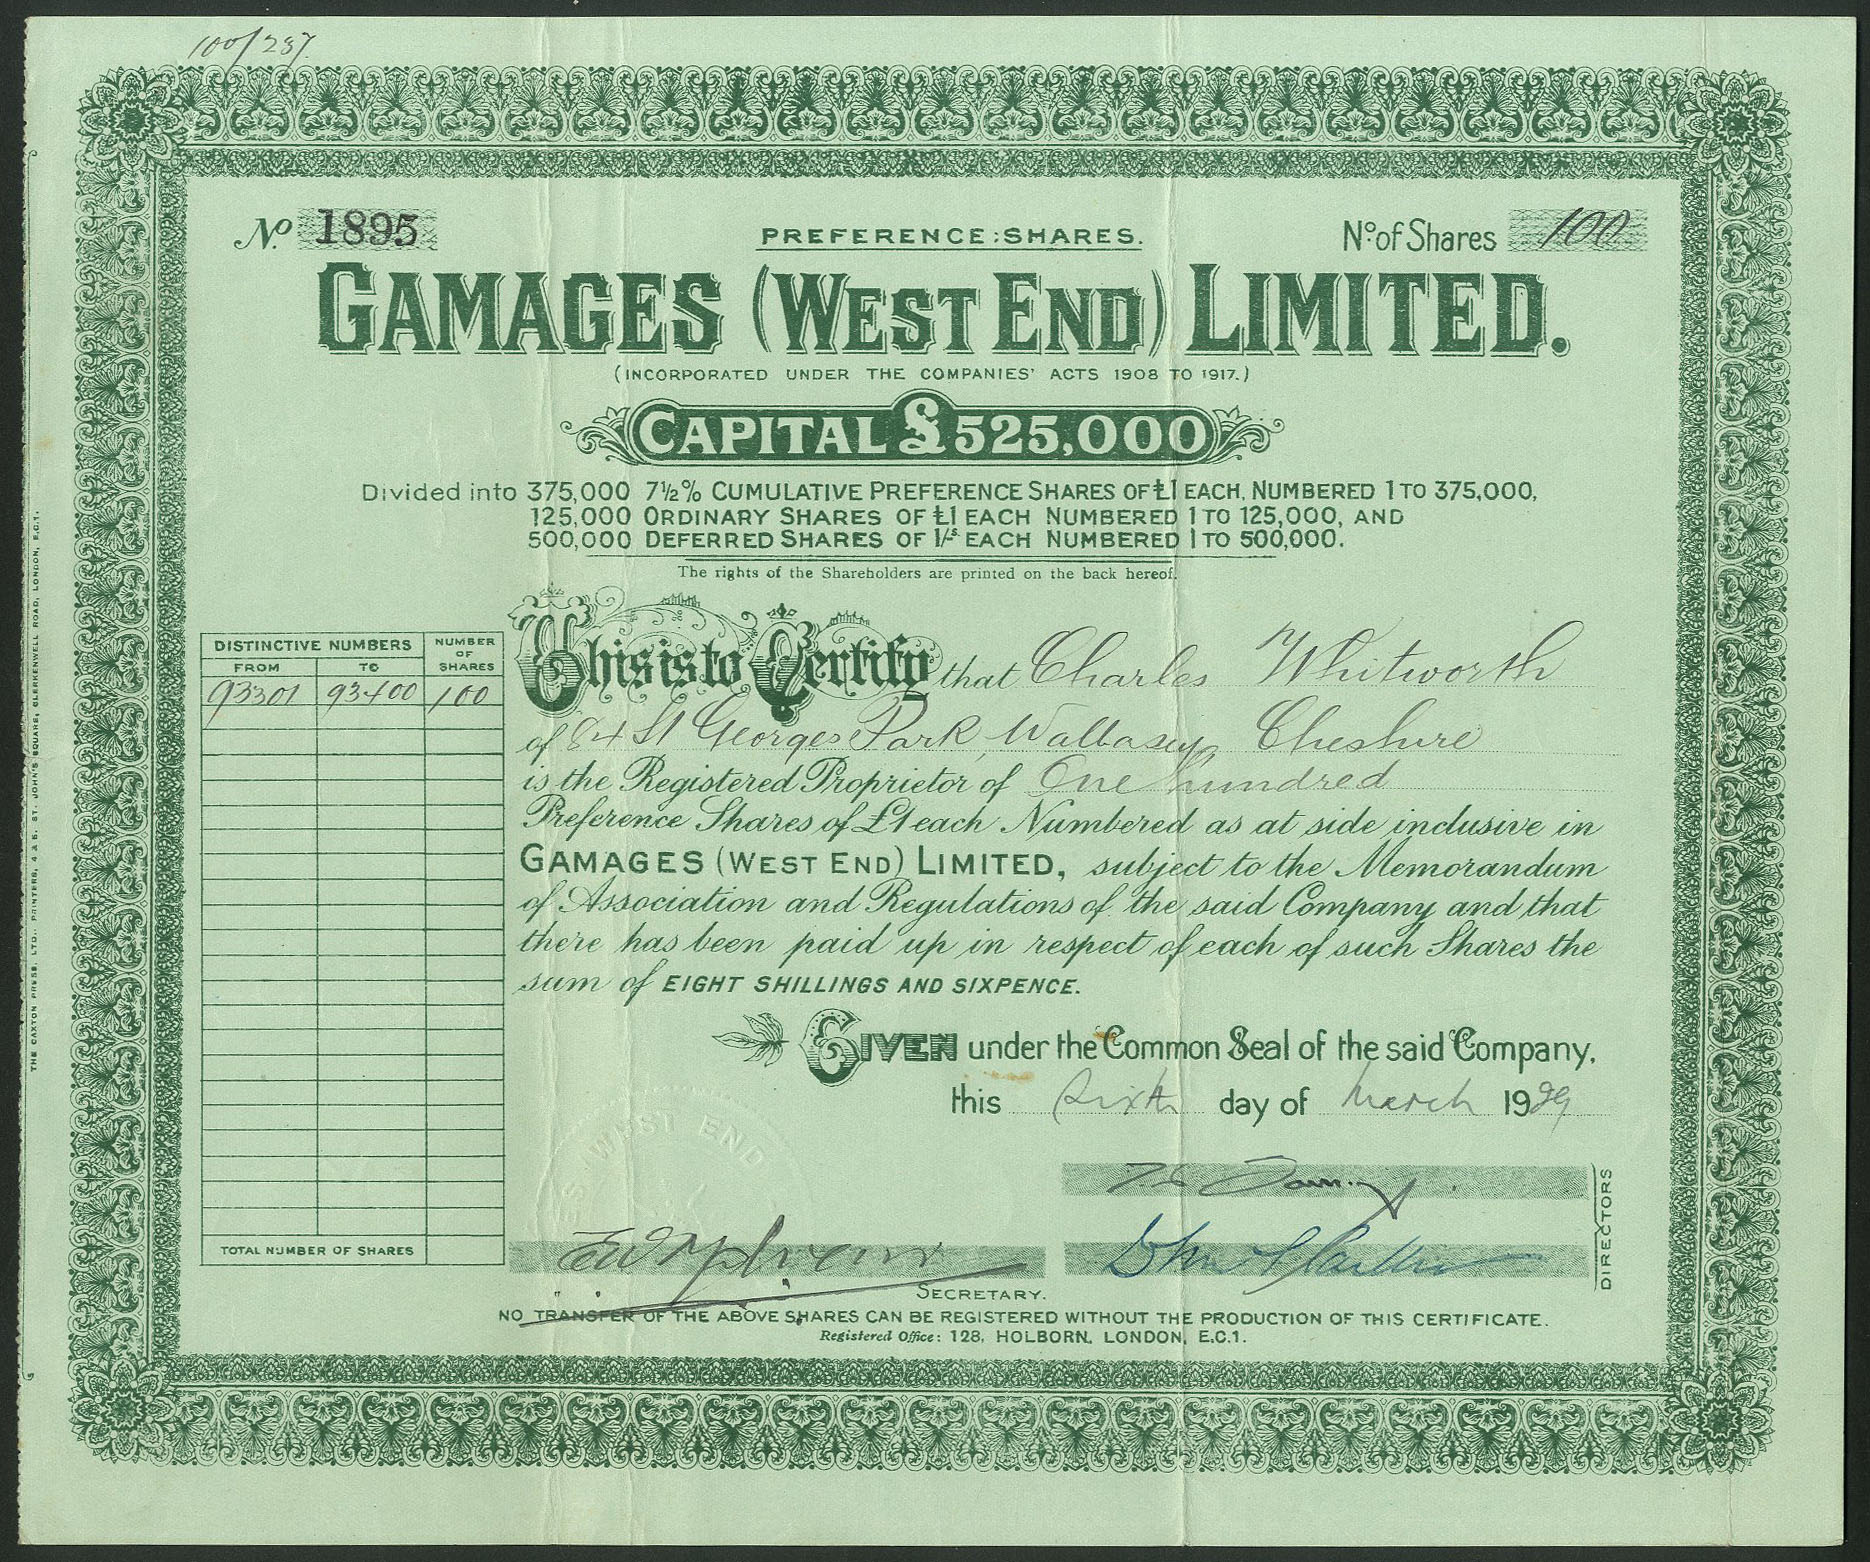 100/237
No. 1895
PREFERENCE : SHARES.
No. of Shares 100
GAMAGES (WEST END) LIMITED.
(INCORPORATED UNDER THE COMPANIES' ACTS 1908 TO 1917.)
CAPITAL £525,000
Divided into 375,000 7½% CUMULATIVE PREFERENCE SHARES OF £1 EACH, NUMBERED 1 TO 375,000,
125,000 ORDINARY SHARES OF £1 EACH NUMBERED 1 TO 125,000, AND
500,000 DEFERRED SHARES OF 1/-s EACH NUMBERED 1 TO 500,000.
The rights of the Shareholders are printed on the back hereof.
DISTINCTIVE NUMBERS
NUMBER OF SHARES
FROM TO
93301 93400 100
TOTAL NUMBER OF SHARES
This is to Certify that Charles Whitworth
of 84 St Georges Park, Wallasey, Cheshire
is the Registered Proprietor of One Hundred
Preference Shares of £1 each Numbered as at side inclusive in
GAMAGES (WEST END) LIMITED, subject to the Memorandum
of Association and Regulations of the said Company and that
there has been paid up in respect of each of such Shares the
sum of EIGHT SHILLINGS AND SIXPENCE.
GIVEN under the Common Seal of the said Company,
this Sixth day of March 1929
WEST END
DIRECTORS
SECRETARY.
NO TRANSFER OF THE ABOVE SHARES CAN BE REGISTERED WITHOUT THE PRODUCTION OF THIS CERTIFICATE.
Registered Office: 128, HOLBORN, LONDON, E.C.1.
THE CAXTON PRESS, LTD., PRINTERS, 4 & 5, ST. JOHN'S SQUARE, CLERKENWELL ROAD, LONDON, E.C.1.